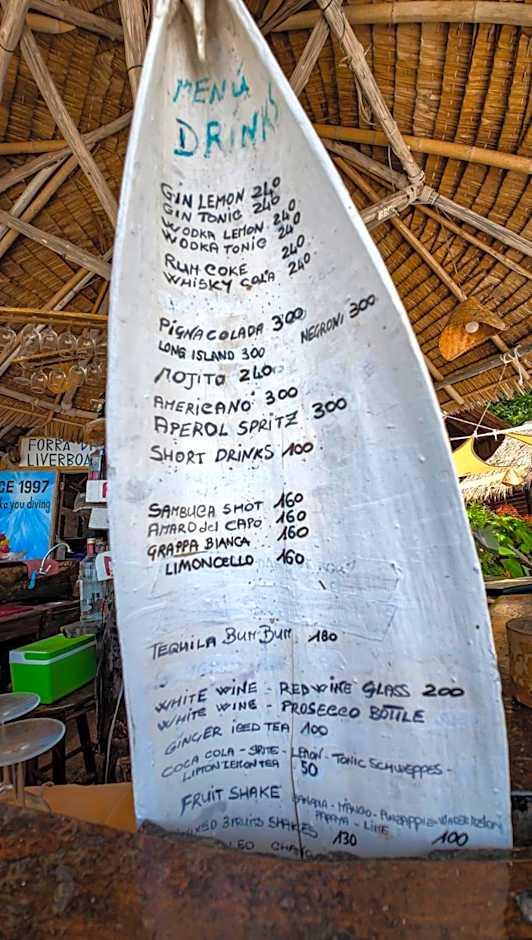 MENÚ
DRINKS
GIN LEMON 240
GIN TONIC 240
WODKA LEMON 240
WODKA TONIC 240
RUM COKE 240
WHISKY COLA 240
PIGNACOLADA 300
NEGRONI 300
LONG ISLAND 300
MOJITO 240
AMERICANO 300
APEROL SPRITZ 300
SHORT DRINKS 100
SAMBUCA SHOT 160
AMARO del CAPO 160
GRAPPA BIANCA 160
LIMONCELLO 160
TEQUILA BUM BUM 180
WHITE WINE - RED WINE GLASS 200
WHITE WINE - PROSECCO BOTTLE
GINGER ICED TEA 100
COCA COLA - SPRITE - LEMON - TONIC SCHWEPPES -
LIMON LEMON TEA 50
FRUIT SHAKE BANANA - MANGO - PINEAPPLE - WATERMELON
PAPAYA - LIME
MIXED 3 FRUITS SHAKES 130 100
FORRA
LIVERBOA
CE 1997
you diving